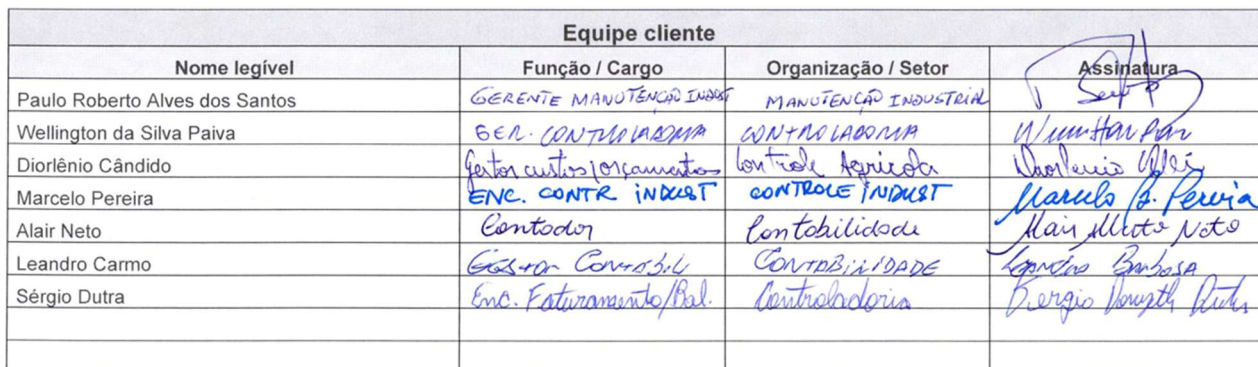 Equipe cliente
Nome legível Função / Cargo Organização / Setor Assinatura
Paulo Roberto Alves dos Santos GERENTE MANUTENÇÃO INDUST MANUTENÇÃO INDUSTRIAL
Wellington da Silva Paiva GER. CONTROLADORIA CONTROLADORIA
Diorlênio Cândido gestor custos/orçamentos Controle Agricola
Marcelo Pereira ENC. CONTR INDUST CONTROLE INDUST Marcelo B. Pereira
Alair Neto Contador Contabilidade Neto
Leandro Carmo Gestor Contábil CONTABILIDADE Leandro Barbosa
Sérgio Dutra Enc. Faturamento/Bal. Controladoria Sergio